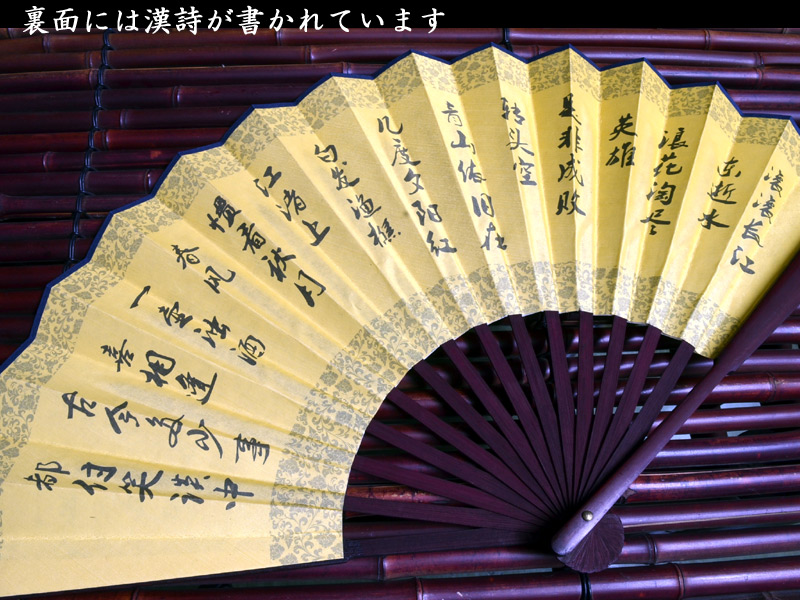 裏面には漢詩が書かれています
滚滚长江
东逝水
浪花淘尽
英雄
是非成败
转头空
青山依旧在
几度夕阳红
白发渔樵
江渚上
惯看秋月
春风
一壶浊酒
喜相逢
古今多少事
都付笑谈中